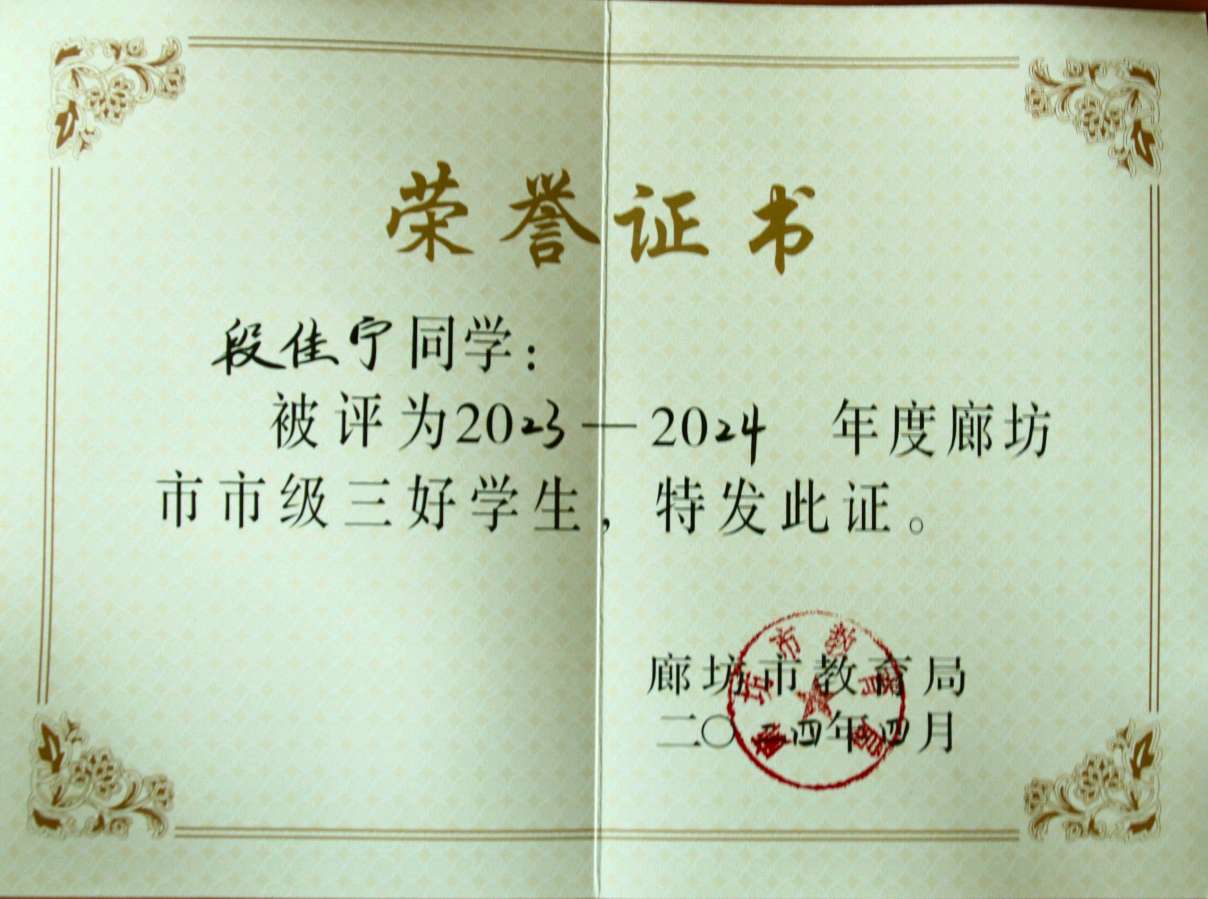 荣誉证书
段佳宁同学：
被评为2023—2024 年度廊坊
市市级三好学生，特发此证。
廊坊市教育局
二〇二四年四月
廊坊市教育局